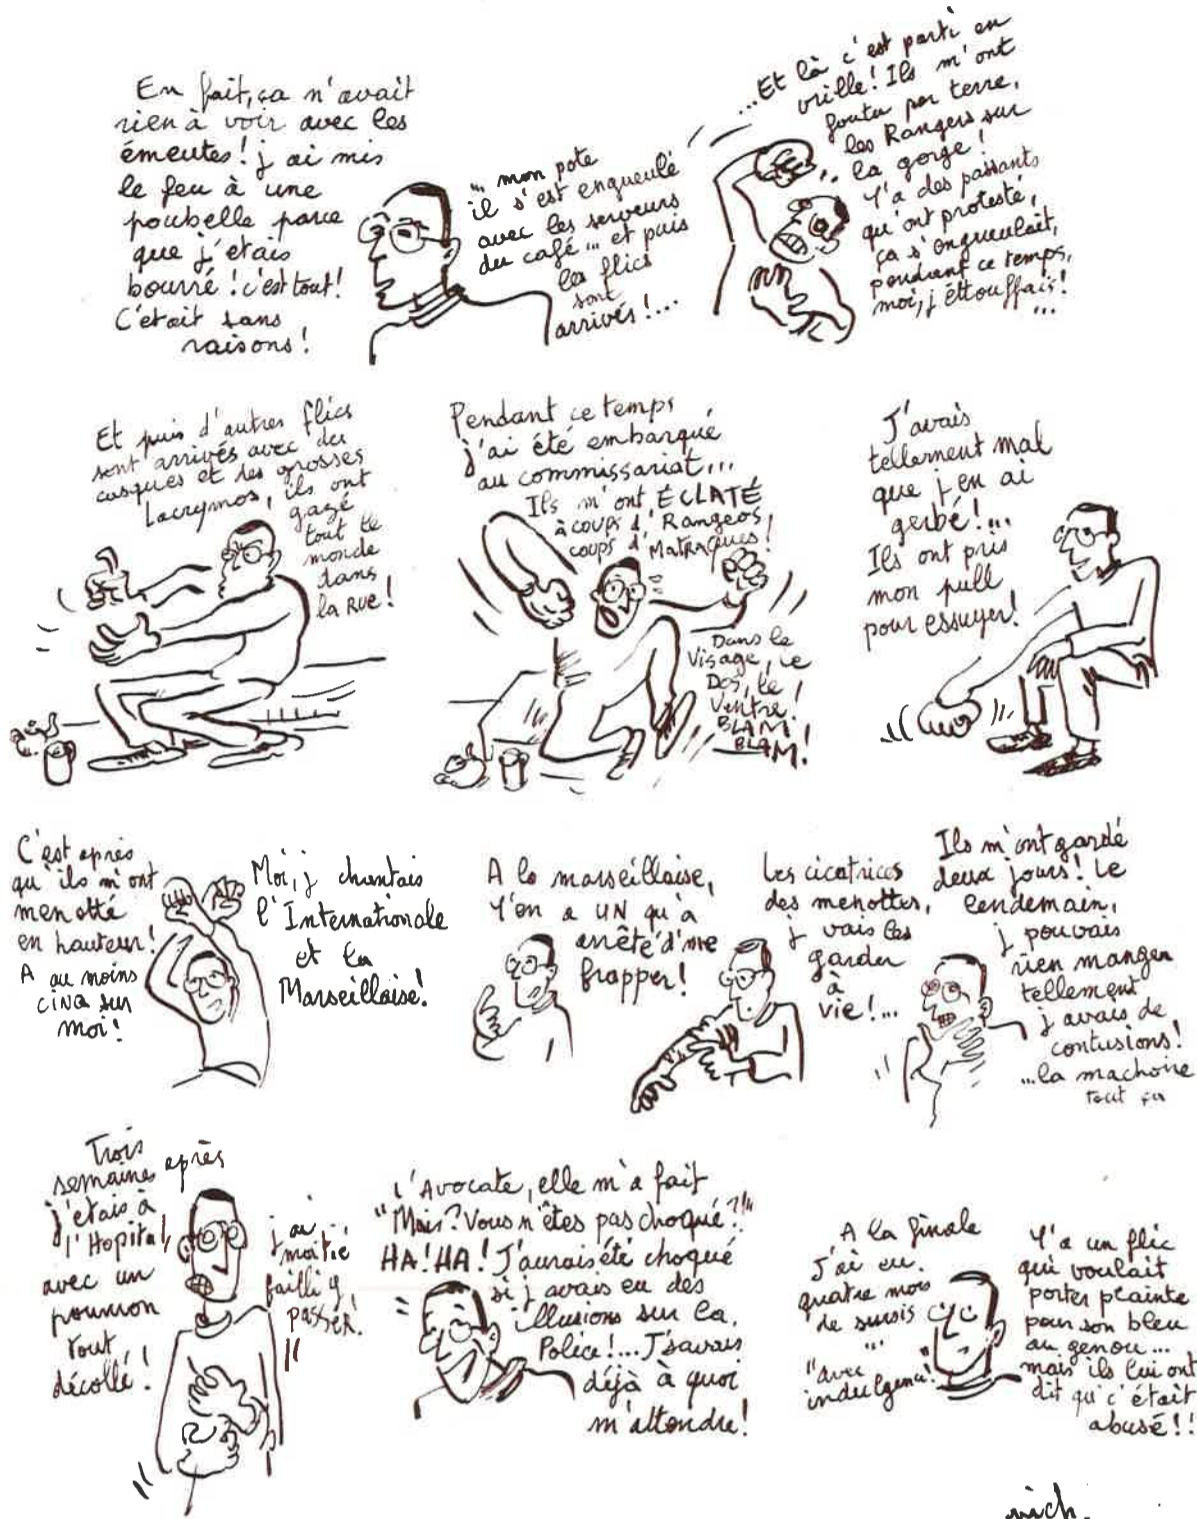 En fait, ça n'avait
rien à voir avec les
émeutes! j'ai mis
le feu à une
poubelle parce
que j'étais
bourré! c'est tout!
C'était sans
raisons!
... mon pote
il s'est engueulé
avec les serveurs
du café... et puis
les flics
sont
arrivés!...
...Et là c'est parti en
vrille! Ils m'ont
foutu par terre,
les Rangers sur
la gorge!
Y'a des passants
qu'ont protesté,
ça s'engueulait,
pendant ce temps,
moi, j'éttouffais!
...
Et puis d'autres flics
sont arrivés avec des
casques et des grosses
Lacrymos, ils ont
gazé
tout le
monde
dans
la RUE!
Pendant ce temps
j'ai été embarqué
au commissariat...
Ils m'ont ÉCLATÉ
à coups d'Rangeos,
coups d'Matraques!
Dans le
Visage, le
Dos, le
Ventre!
BLAM
BLAM!
J'avais
tellement mal
que j'en ai
gerbé!...
Ils ont pris
mon pull
pour essuyer!
C'est après
qu'ils m'ont
menotté
en hauteur!
A au moins
CINQ sur
moi!
Moi, j'chantais
l'Internationale
et la
Marseillaise!
A la marseillaise,
Y'en a UN qu'a
arrêté d'me
frapper!
Les cicatrices
des menottes,
j'vais les
garder
à
vie!...
Ils m'ont gardé
deux jours! Le
lendemain,
j'pouvais
rien manger
tellement
j'avais de
contusions!
...la machoire
tout ça
Trois
semaines après
j'étais à
l'Hopital,
avec un
poumon
tout
décollé!
j'ai
moitié
failli y
PASSER!
L'Avocate, elle m'a fait
"Mais? Vous n'êtes pas choqué?!"
HA! HA! J'aurais été choqué
si j'avais eu des
illusions sur la
Police!... J'savais
déjà à quoi
m'attendre!
A la finale
J'ai eu
quatre mois
de sursis
...
"avec
indulgence"!
Y'a un flic
qui voulait
porter plainte
pour son bleu
au genou...
mais ils lui ont
dit qu'c'était
abusé!!